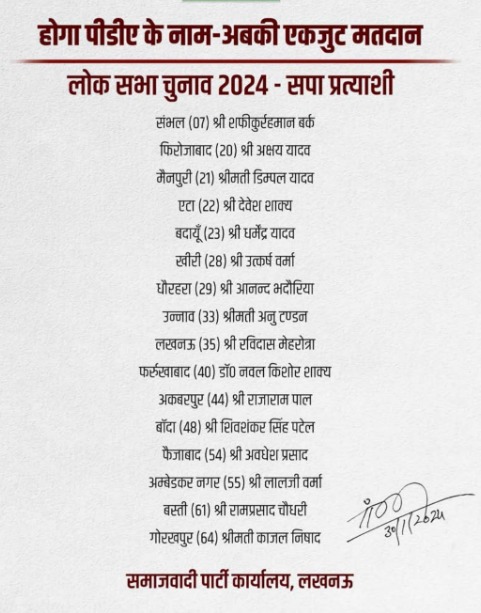 होगा पीडीए के नाम-अबकी एकजुट मतदान
लोक सभा चुनाव 2024 - सपा प्रत्याशी
संभल (07) श्री शफीकुर्रहमान बर्क
फिरोजाबाद (20) श्री अक्षय यादव
मैनपुरी (21) श्रीमती डिम्पल यादव
एटा (22) श्री देवेश शाक्य
बदायूँ (23) श्री धर्मेंद्र यादव
खीरी (28) श्री उत्कर्ष वर्मा
धौरहरा (29) श्री आनन्द भदौरिया
उन्नाव (33) श्रीमती अनु टण्डन
लखनऊ (35) श्री रविदास मेहरोत्रा
फर्रुखाबाद (40) डॉ0 नवल किशोर शाक्य
अकबरपुर (44) श्री राजाराम पाल
बाँदा (48) श्री शिवशंकर सिंह पटेल
फैजाबाद (54) श्री अवधेश प्रसाद
अम्बेडकर नगर (55) श्री लालजी वर्मा
बस्ती (61) श्री रामप्रसाद चौधरी
गोरखपुर (64) श्रीमती काजल निषाद
30/1/2024
समाजवादी पार्टी कार्यालय, लखनऊ